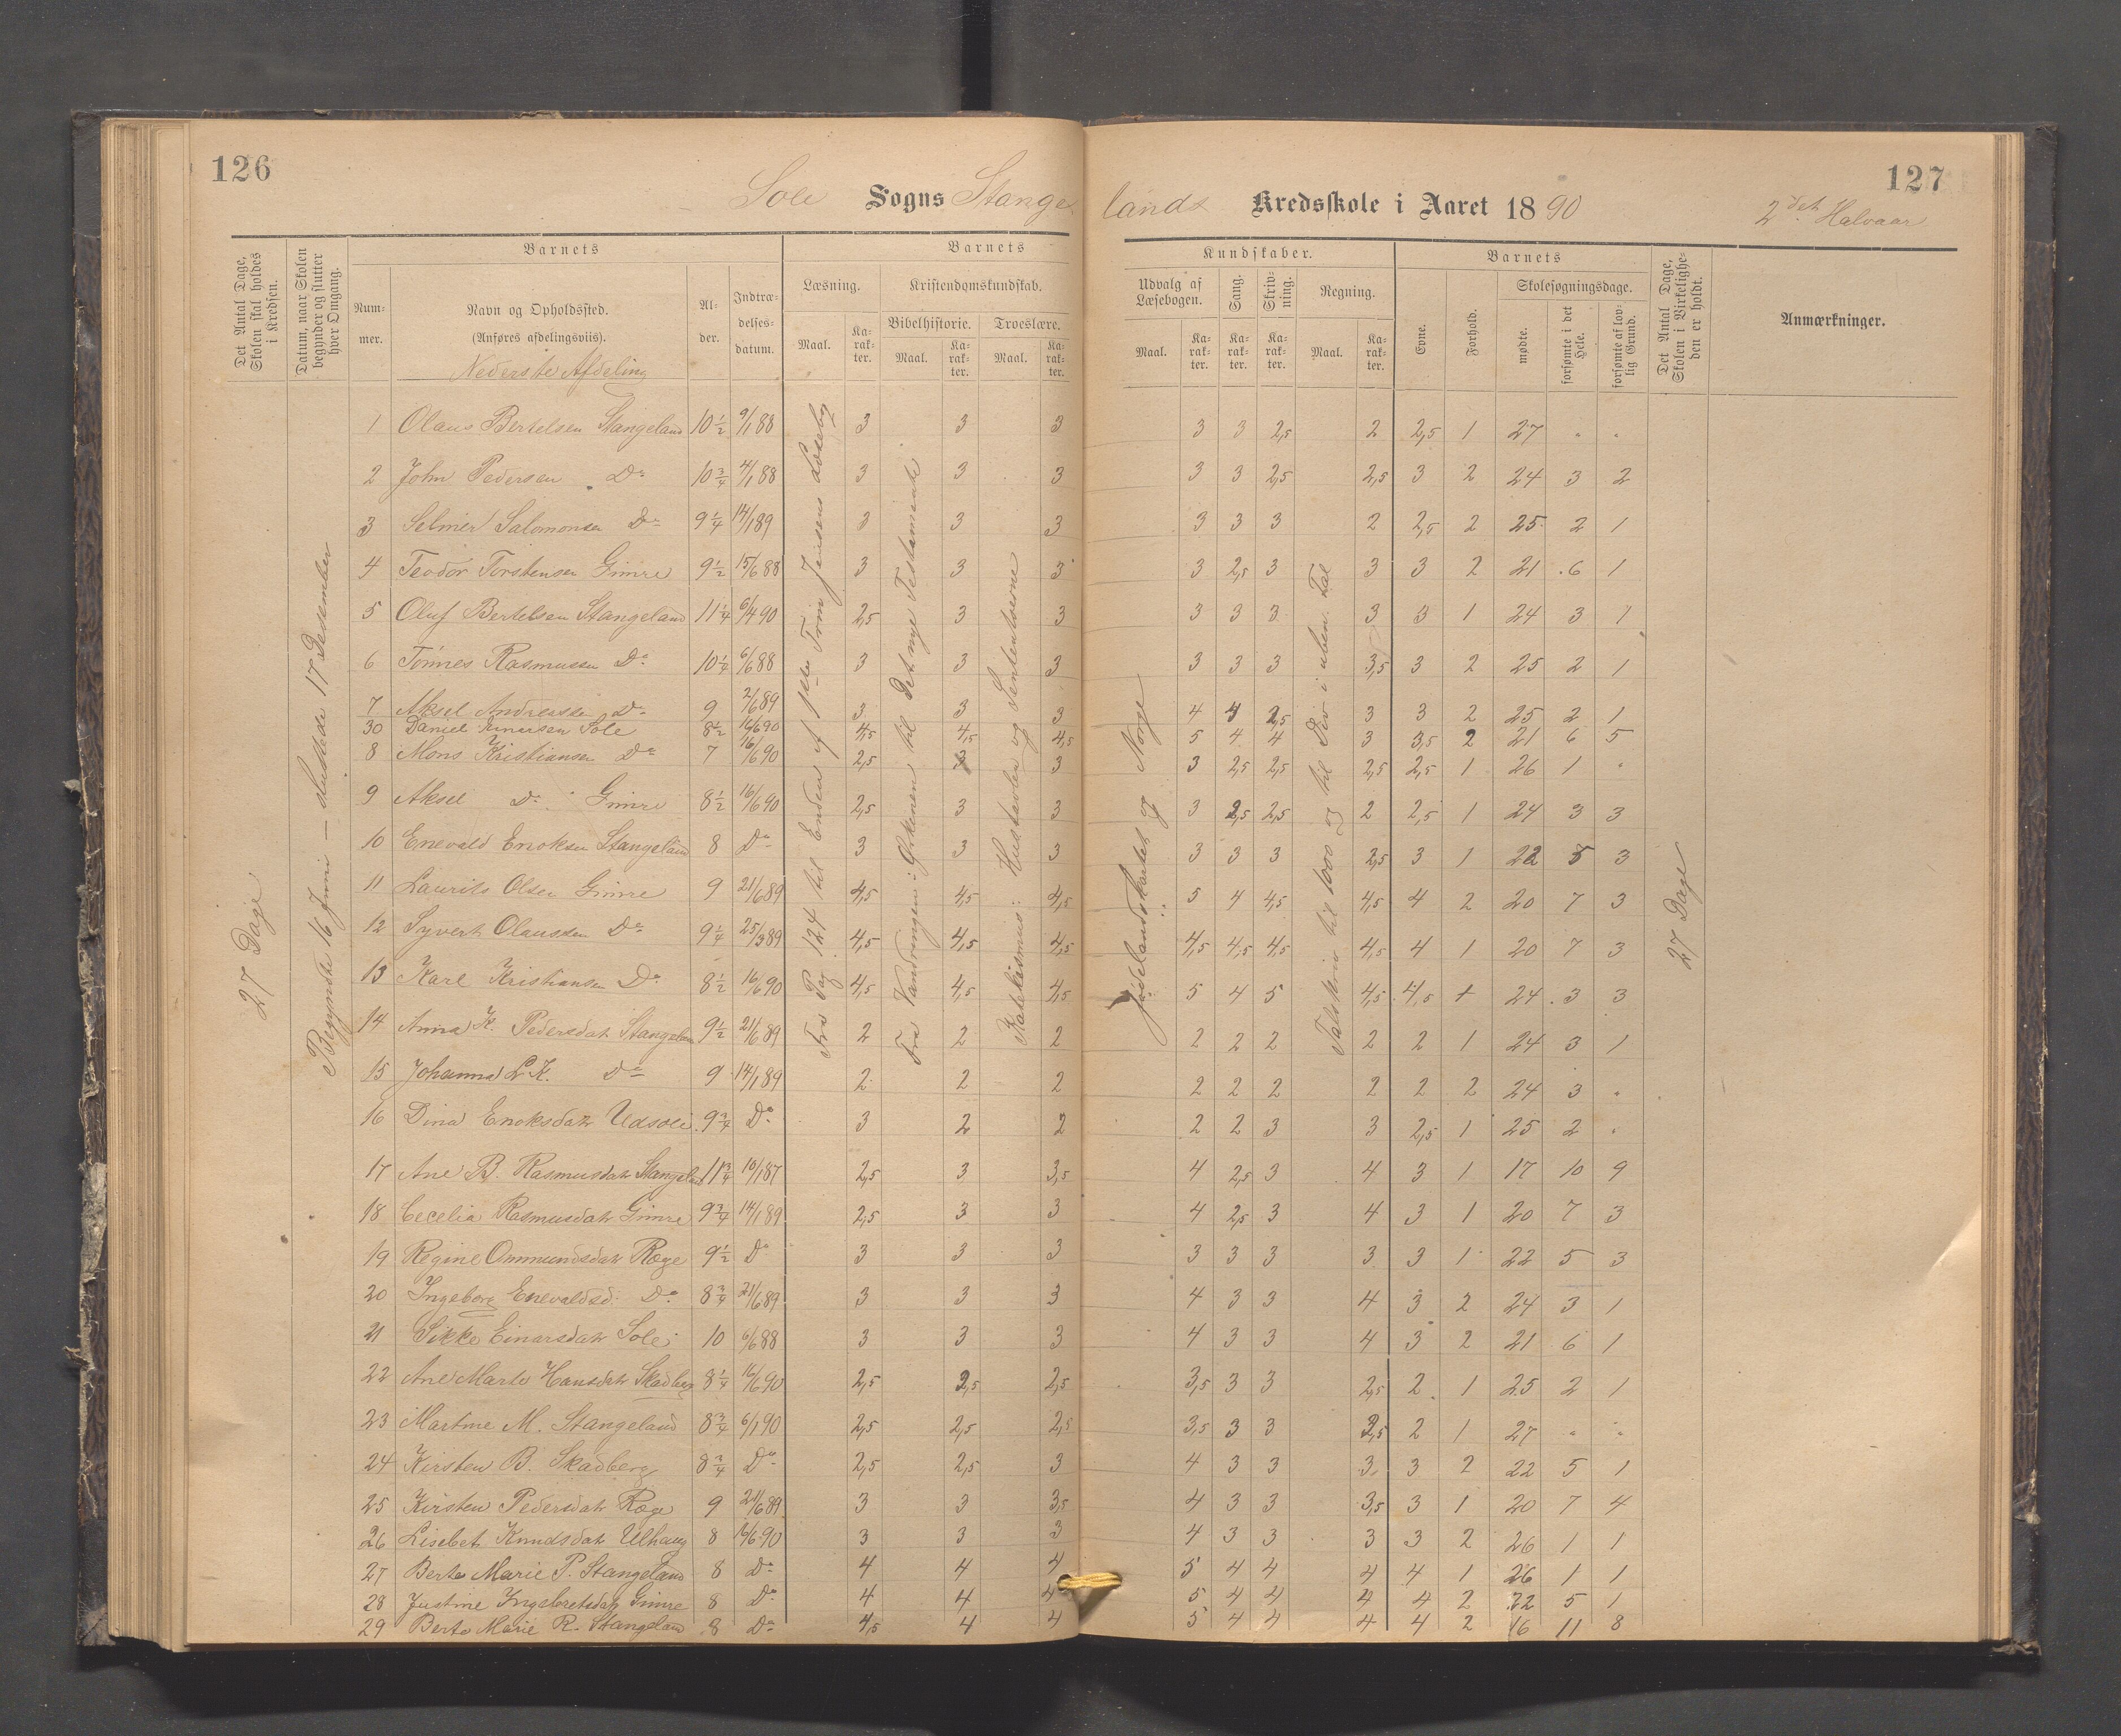 126
127
Sole Sogns Stangelands Kredsskole i Aaret 1890 2det Halvaar
Det Antal Dage, Skolen skal holdes i Kredsen.
Datum, naar Skolen begynder og slutter hver Omgang.
Barnets
Nummer.
Navn og Opholdssted.
(Anføres afdelingsviis).
Nederste Afdeling
Alder.
Indtrædelsesdatum.
Barnets Kundskaber.
Læsning.
Maal.
Karakter.
Kristendomskundskab.
Bibelhistorie.
Maal.
Karakter.
Troeslære.
Maal.
Karakter.
Udvalg af Læsebogen.
Maal.
Karakter.
Sang.
Karakter.
Skrivning.
Karakter.
Regning.
Maal.
Karakter.
Barnets
Evne.
Forhold.
Skolesøgningsdage.
mødte.
forsømte i det Hele.
forsømte af lovlig Grund.
Det Antal Dage, Skolen i Virkeligheden er holdt.
Anmærkninger.
27 Dage
Begyndte 16 Juni — sluttede 17 Desember
Fra Pag. 124 til Enden af Trin Jensens Læsebog
Fra Vandringen i Ørkenen til Det nye Testamente
Katekismus: Hustavlen og Sentenserne
Jødelandskartet og Norge
Talskriv til 1000 og til Div i uben. Tal
27 Dage
1 Olaus Bertelsen Stangeland 10 1/2 9/1 88 3 3 3 3 3 2,5 2 2,5 1 27 " "
2 John Pedersen Do 10 3/4 4/1 88 3 3 3 3 3 2,5 2,5 3 2 24 3 2
3 Selmer Salomonsen Do 9 1/4 14/1 89 3 3 3 3 3 3 2 2,5 2 25 2 1
4 Teodor Torstensen Gimre 9 1/2 15/6 88 3 3 3 3 2,5 3 3 3 2 21 6 1
5 Oluf Bertelsen Stangeland 11 1/4 6/4 90 2,5 3 3 3 3 3 3 3 1 24 3 1
6 Tönnes Rasmussen Do 10 1/4 6/6 88 3 3 3 3 3 3 3,5 3 2 25 2 1
7 Aksel Andreassen Do 9 2/6 89 3 3 3 4 4 2,5 3 3 2 25 2 1
30 Daniel Einersen Sole 8 1/2 16/6 90 4,5 4,5 4,5 5 4 4 3 3,5 2 21 6 5
8 Mons Kristiansen Do 7 16/6 90 2,5 3 3 3 2,5 2,5 2,5 2,5 1 26 1 "
9 Aksel Do Gimre 8 1/2 16/6 90 2,5 3 3 3 2,5 2,5 2 2,5 1 24 3 3
10 Enevald Enoksen Stangeland 8 Do 3 3 3 3 3 3 2,5 3 1 22 5 3
11 Laurits Olsen Gimre 9 21/6 89 4,5 4,5 4,5 5 4 4,5 4,5 4 2 20 7 3
12 Syvert Olaussen Do 9 1/4 25/3 89 4,5 4,5 4,5 4,5 4,5 4,5 4,5 4 1 20 7 3
13 Karl Kristiansen Do 8 1/2 16/6 90 4,5 4,5 4,5 5 4 5 4,5 4,5 + 24 3 3
14 Anna K. Pedersdatr Stangeland 9 1/2 21/6 89 2 2 2 2 2 2 2 2 1 24 3 1
15 Johanna L K. Do 9 14/1 89 2 2 2 2 2 2 2 2 2 24 3 "
16 Dina Enoksdatr Udsole 9 3/4 Do 3 2 2 2 2 3 3 2,5 1 25 2 "
17 Ane B. Rasmusdatr Stangeland 11 3/4 10/1 87 2,5 3 3,5 4 2,5 3 4 3 1 17 10 9
18 Cecelia Rasmusdatr Gimre 9 3/4 14/1 89 2,5 3 3 4 2,5 3 4 3 1 20 7 3
19 Regine Ommundsdatr Ræge 9 1/2 Do 3 3 3 3 3 3 3 3 1 22 5 3
20 Ingeborg Enevaldsd. Do 8 3/4 21/6 89 3 3 3 4 3 3 4 3 2 24 3 1
21 Sikke Einarsdatr Sole 10 6/6 88 3 3 3 4 3 3 4 3 2 21 6 1
22 Ane Marte Hansdatr Skadberg 8 1/4 16/6 90 2,5 2,5 2,5 3,5 3 3 2,5 2 1 25 2 1
23 Martine M. Stangeland 8 3/4 6/1 90 2,5 2,5 2,5 3,5 3 3 2,5 2 1 27 " "
24 Kirsten B. Skadberg 8 3/4 Do 2,5 2,5 3 4 3 3 3 3 2 22 5 1
25 Kirsten Pedersdatr Ræge 9 21/6 89 3 3 3,5 4 3 3 3,5 3 1 20 7 4
26 Lisebet Knudsdatr Ulhaug 8 16/6 90 3 3 3 4 3 3 3 3 2 26 1 1
27 Berte Marie P. Stangeland 8 Do 4 4 4 5 4 4 4 4 1 26 1 1
28 Justine Ingebretsdatr Gimre 8 Do 4 4 4 5 4 4 4 4 2 22 5 1
29 Berte Marie R. Stangeland 8 Do 4,5 4 4 5 4 4 4 4 2 16 11 8